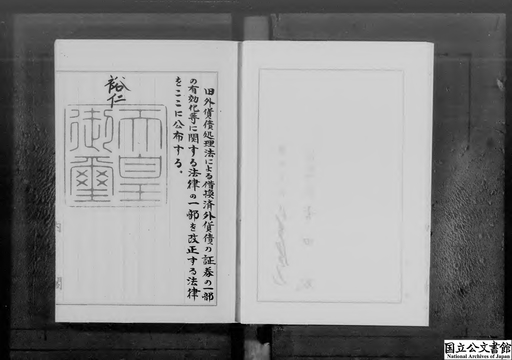 旧外貨債処理法による借換済外貨債の証券の一部
の有効化等に関する法律の一部を改正する法律
をここに公布する。
裕仁
天皇御璽
国立公文書館
National Archives of Japan